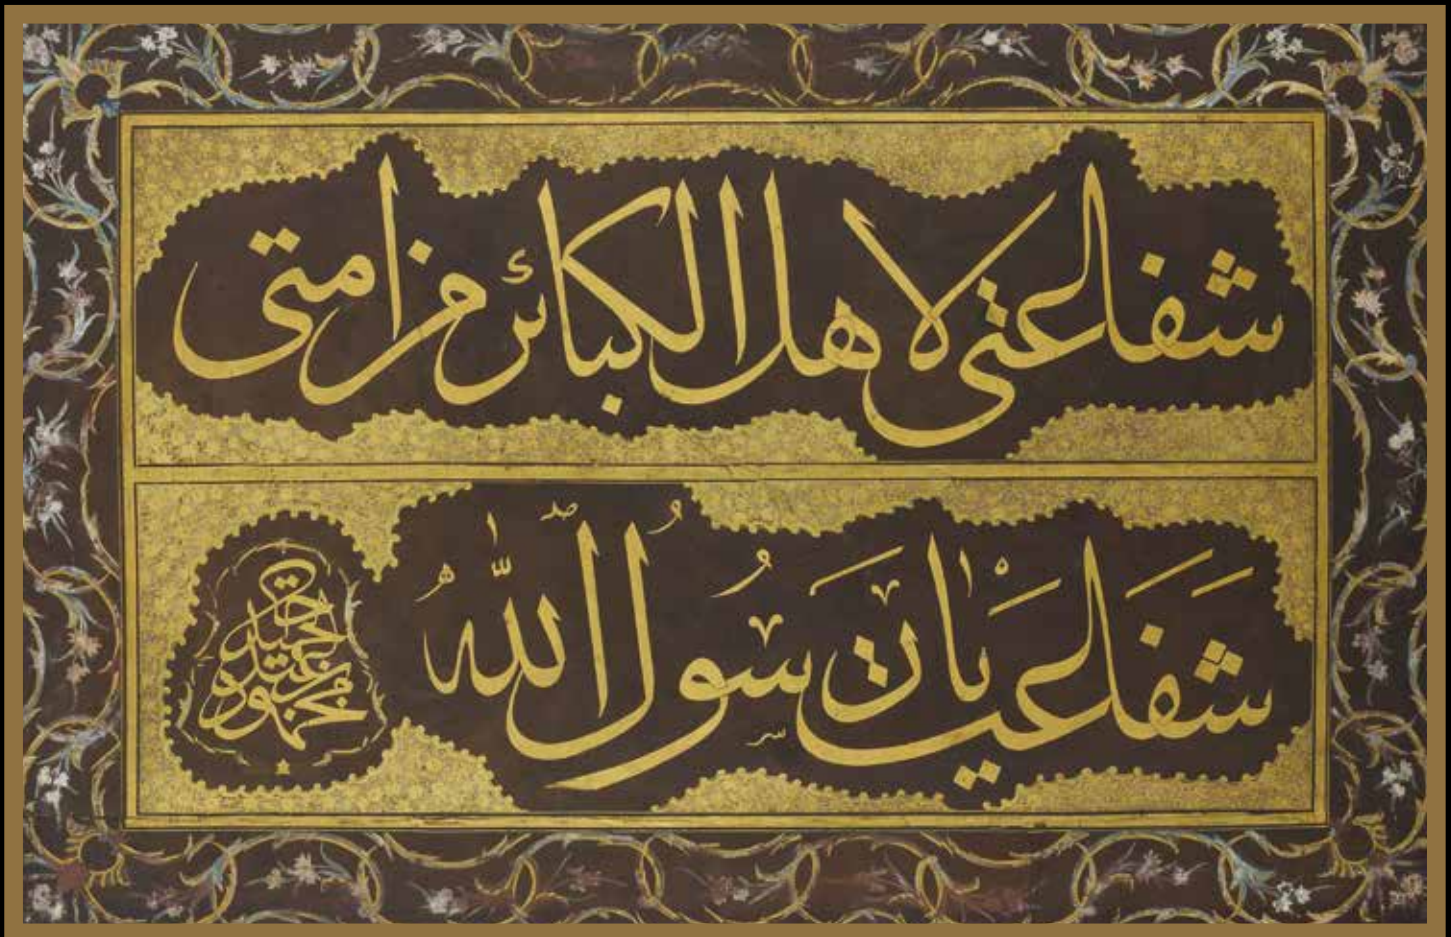 شفاعتى لاهل الكبائر من امتى
شَفَاعَت يَا رَسُولُ اللّٰه
محمود بن عبد الحميد خان